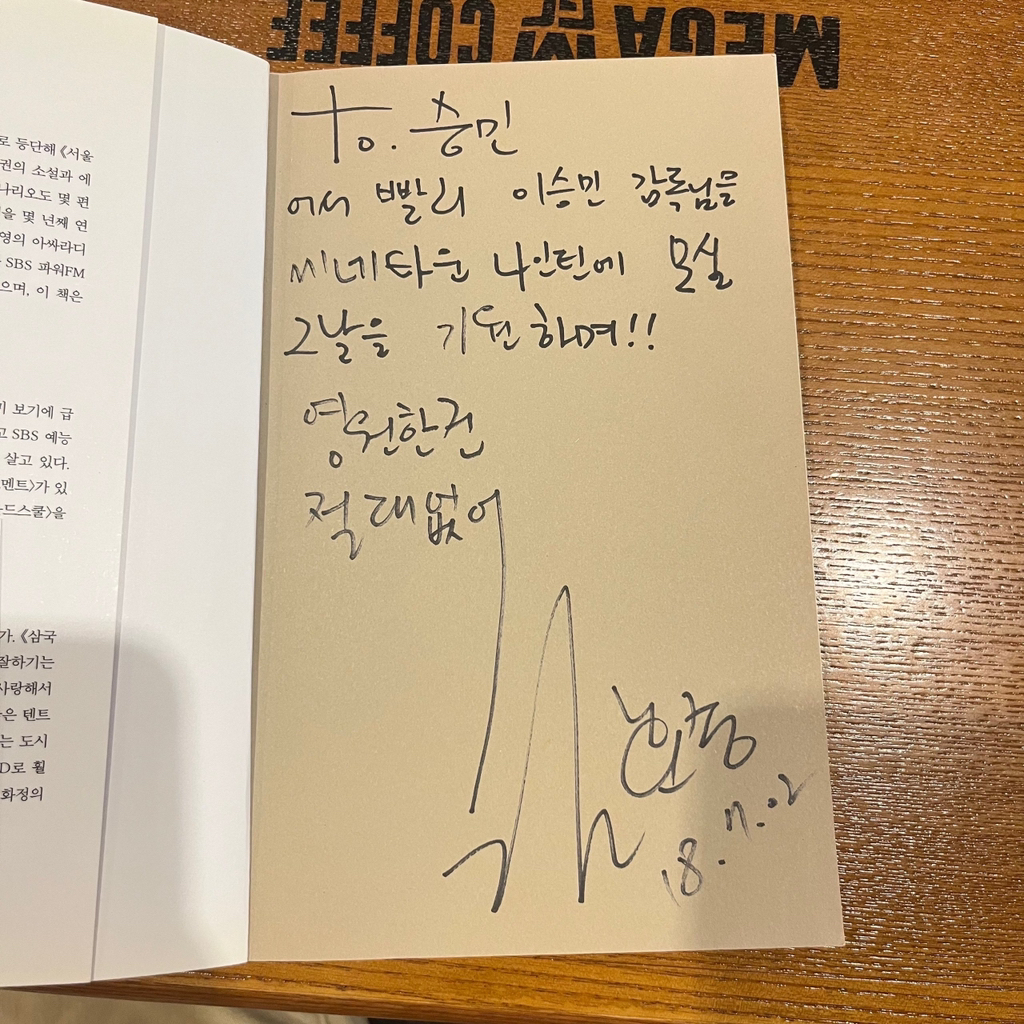 MEGA COFFEE
로 등단해 《서울
권의 소설과 에
나리오도 몇 편
을 몇 년째 연
영의 아싸라디
SBS 파워FM
으며, 이 책은
보기에 급
고 SBS 예능
살고 있다.
멘트〉가 있
드스쿨〉을
가. 《삼국
잘하기는
사랑해서
은 텐트
는 도시
D로 훨
화정의
to. 승민
어서 빨리 이승민 감독님을
씨네타운 나인틴에 모실
그날을 기원하며!!
영원한건
절대없어
18. 7. 02